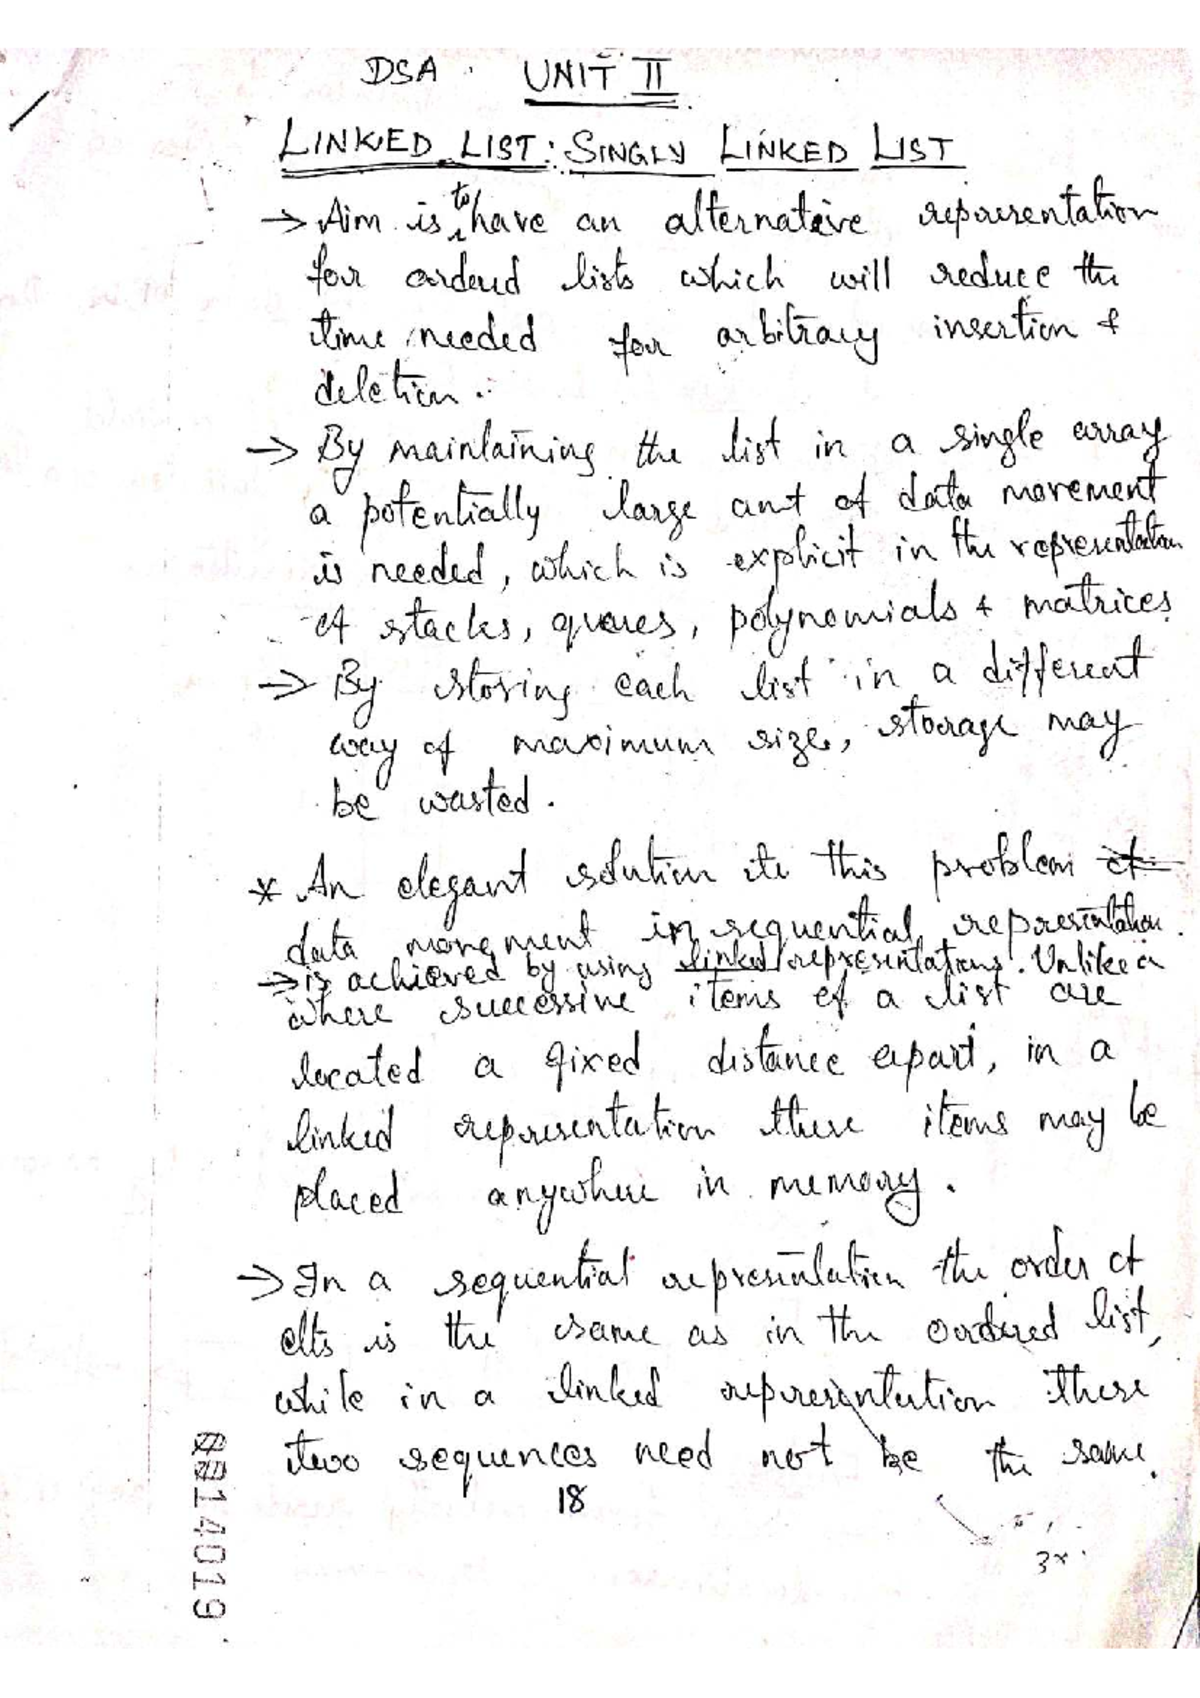 DSA . UNIT II
LINKED LIST: SINGLY LINKED LIST
→ Aim is to have an alternative representation
for ordered lists which will reduce the
time needed for arbitrary insertion &
deletion.
→ By maintaining the list in a single array
a potentially large amt of data movement
is needed, which is explicit in the representation
of stacks, queues, polynomials & matrices.
→ By storing each list in a different
way of maximum size, storage may
be wasted.
* An elegant solution to this problem of
data movement in sequential representation.
→ is achieved by using linked representations. Unlike a
where successive items of a list are
located a fixed distance apart, in a
linked representation these items may be
placed anywhere in memory.
→ In a sequential representation the order of
elts is the same as in the ordered list,
while in a linked representation these
two sequences need not be the same.
18
3x
14019